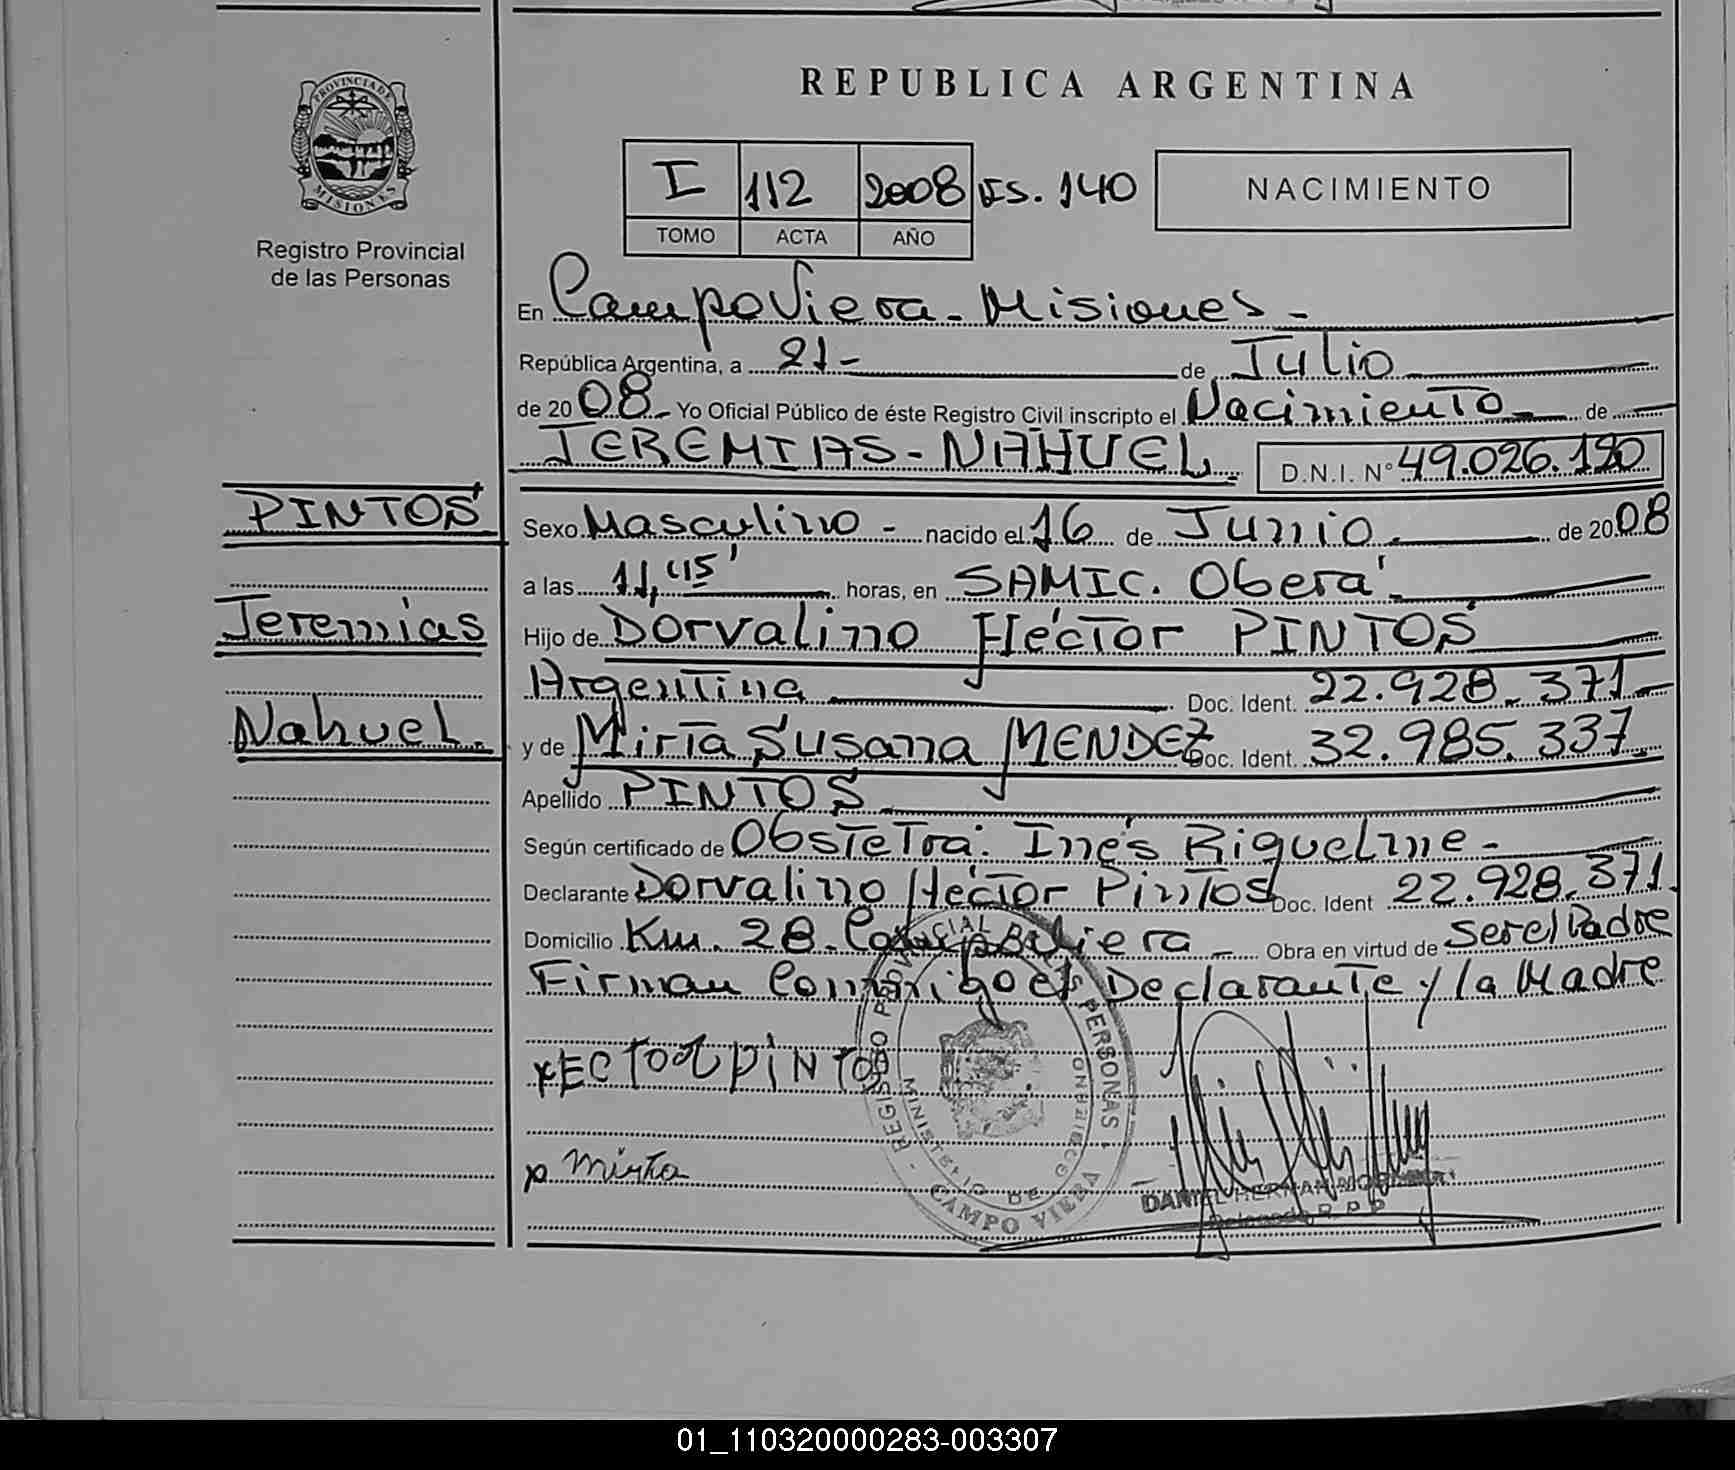 REPUBLICA ARGENTINA
PROVINCIA DE MISIONES
Registro Provincial
de las Personas
I 112 2008 FS. 140
TOMO ACTA AÑO
NACIMIENTO
En Campo Viera - Misiones -
República Argentina, a 21 - de Julio
de 20 08 - Yo Oficial Público de éste Registro Civil inscripto el Nacimiento - de
JEREMIAS - NAHUEL D.N.I. N° 49.026.190
PINTOS
Jeremias
Nahuel.
Sexo Masculino - nacido el 16 de Junio de 20 08
a las 11,45' horas, en SAMIC. Oberá -
Hijo de Dorvalino Héctor PINTOS
Argentina Doc. Ident. 22.928.371 -
y de Mirta Susana MENDEZ Doc. Ident. 32.985.337.
Apellido PINTOS
Según certificado de Obstetra: Inés Riquelme -
Declarante Dorvalino Héctor Pintos Doc. Ident 22.928.371.
Domicilio Km. 28 - Campo Viera - Obra en virtud de ser el Padre
Firman Conmigo el Declarante y la Madre
x ECTOR PINTOS
x Mirta
REGISTRO PROVINCIAL PERSONAS
MINISTERIO DE GOBIERNO
CAMPO VIERA
DANIEL HERNAN
Delegado R.P.P.
01_110320000283-003307